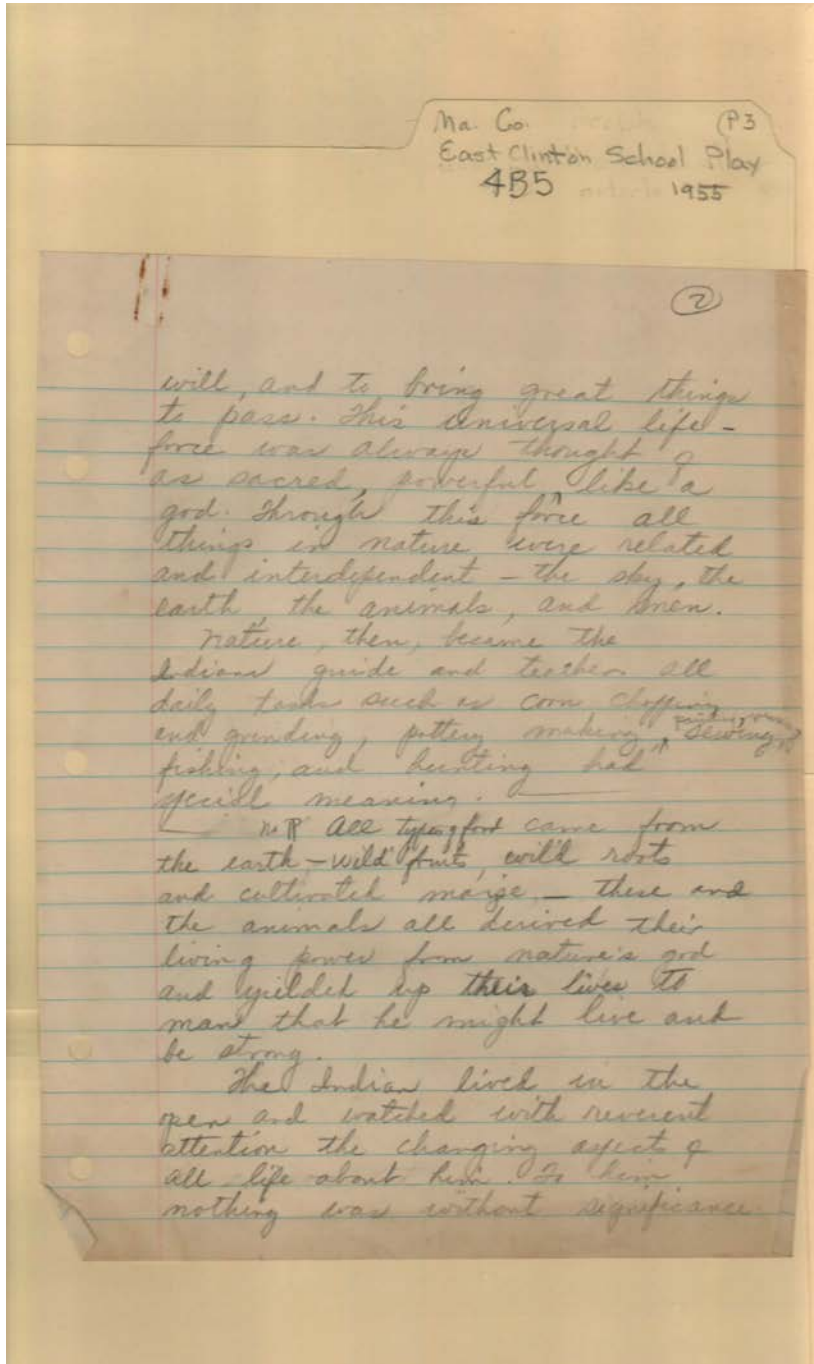 Ma. Co. P3
East Clinton School Play
4B5 1955
2
will, and to bring great things
to pass. This universal life-
force was always thought of
as sacred, powerful like a
god. Through this force all
things in nature were related
and interdependent – the sky, the
earth, the animals, and men.
Nature, then, became the
Indians guide and teacher all
daily tasks such as corn chopping
and grinding, pottery making, sewing
fishing, and hunting had
special meaning.
No ¶ All types of food came from
the earth – wild fruits, wild roots
and cultivated maize – these and
the animals all derived their
living power from nature's god
and yielded up their lives to
man that he might live and
be strong.
The Indian lived in the
open and watched with reverent
attention the changing aspect of
all life about him. To him
nothing was without significance